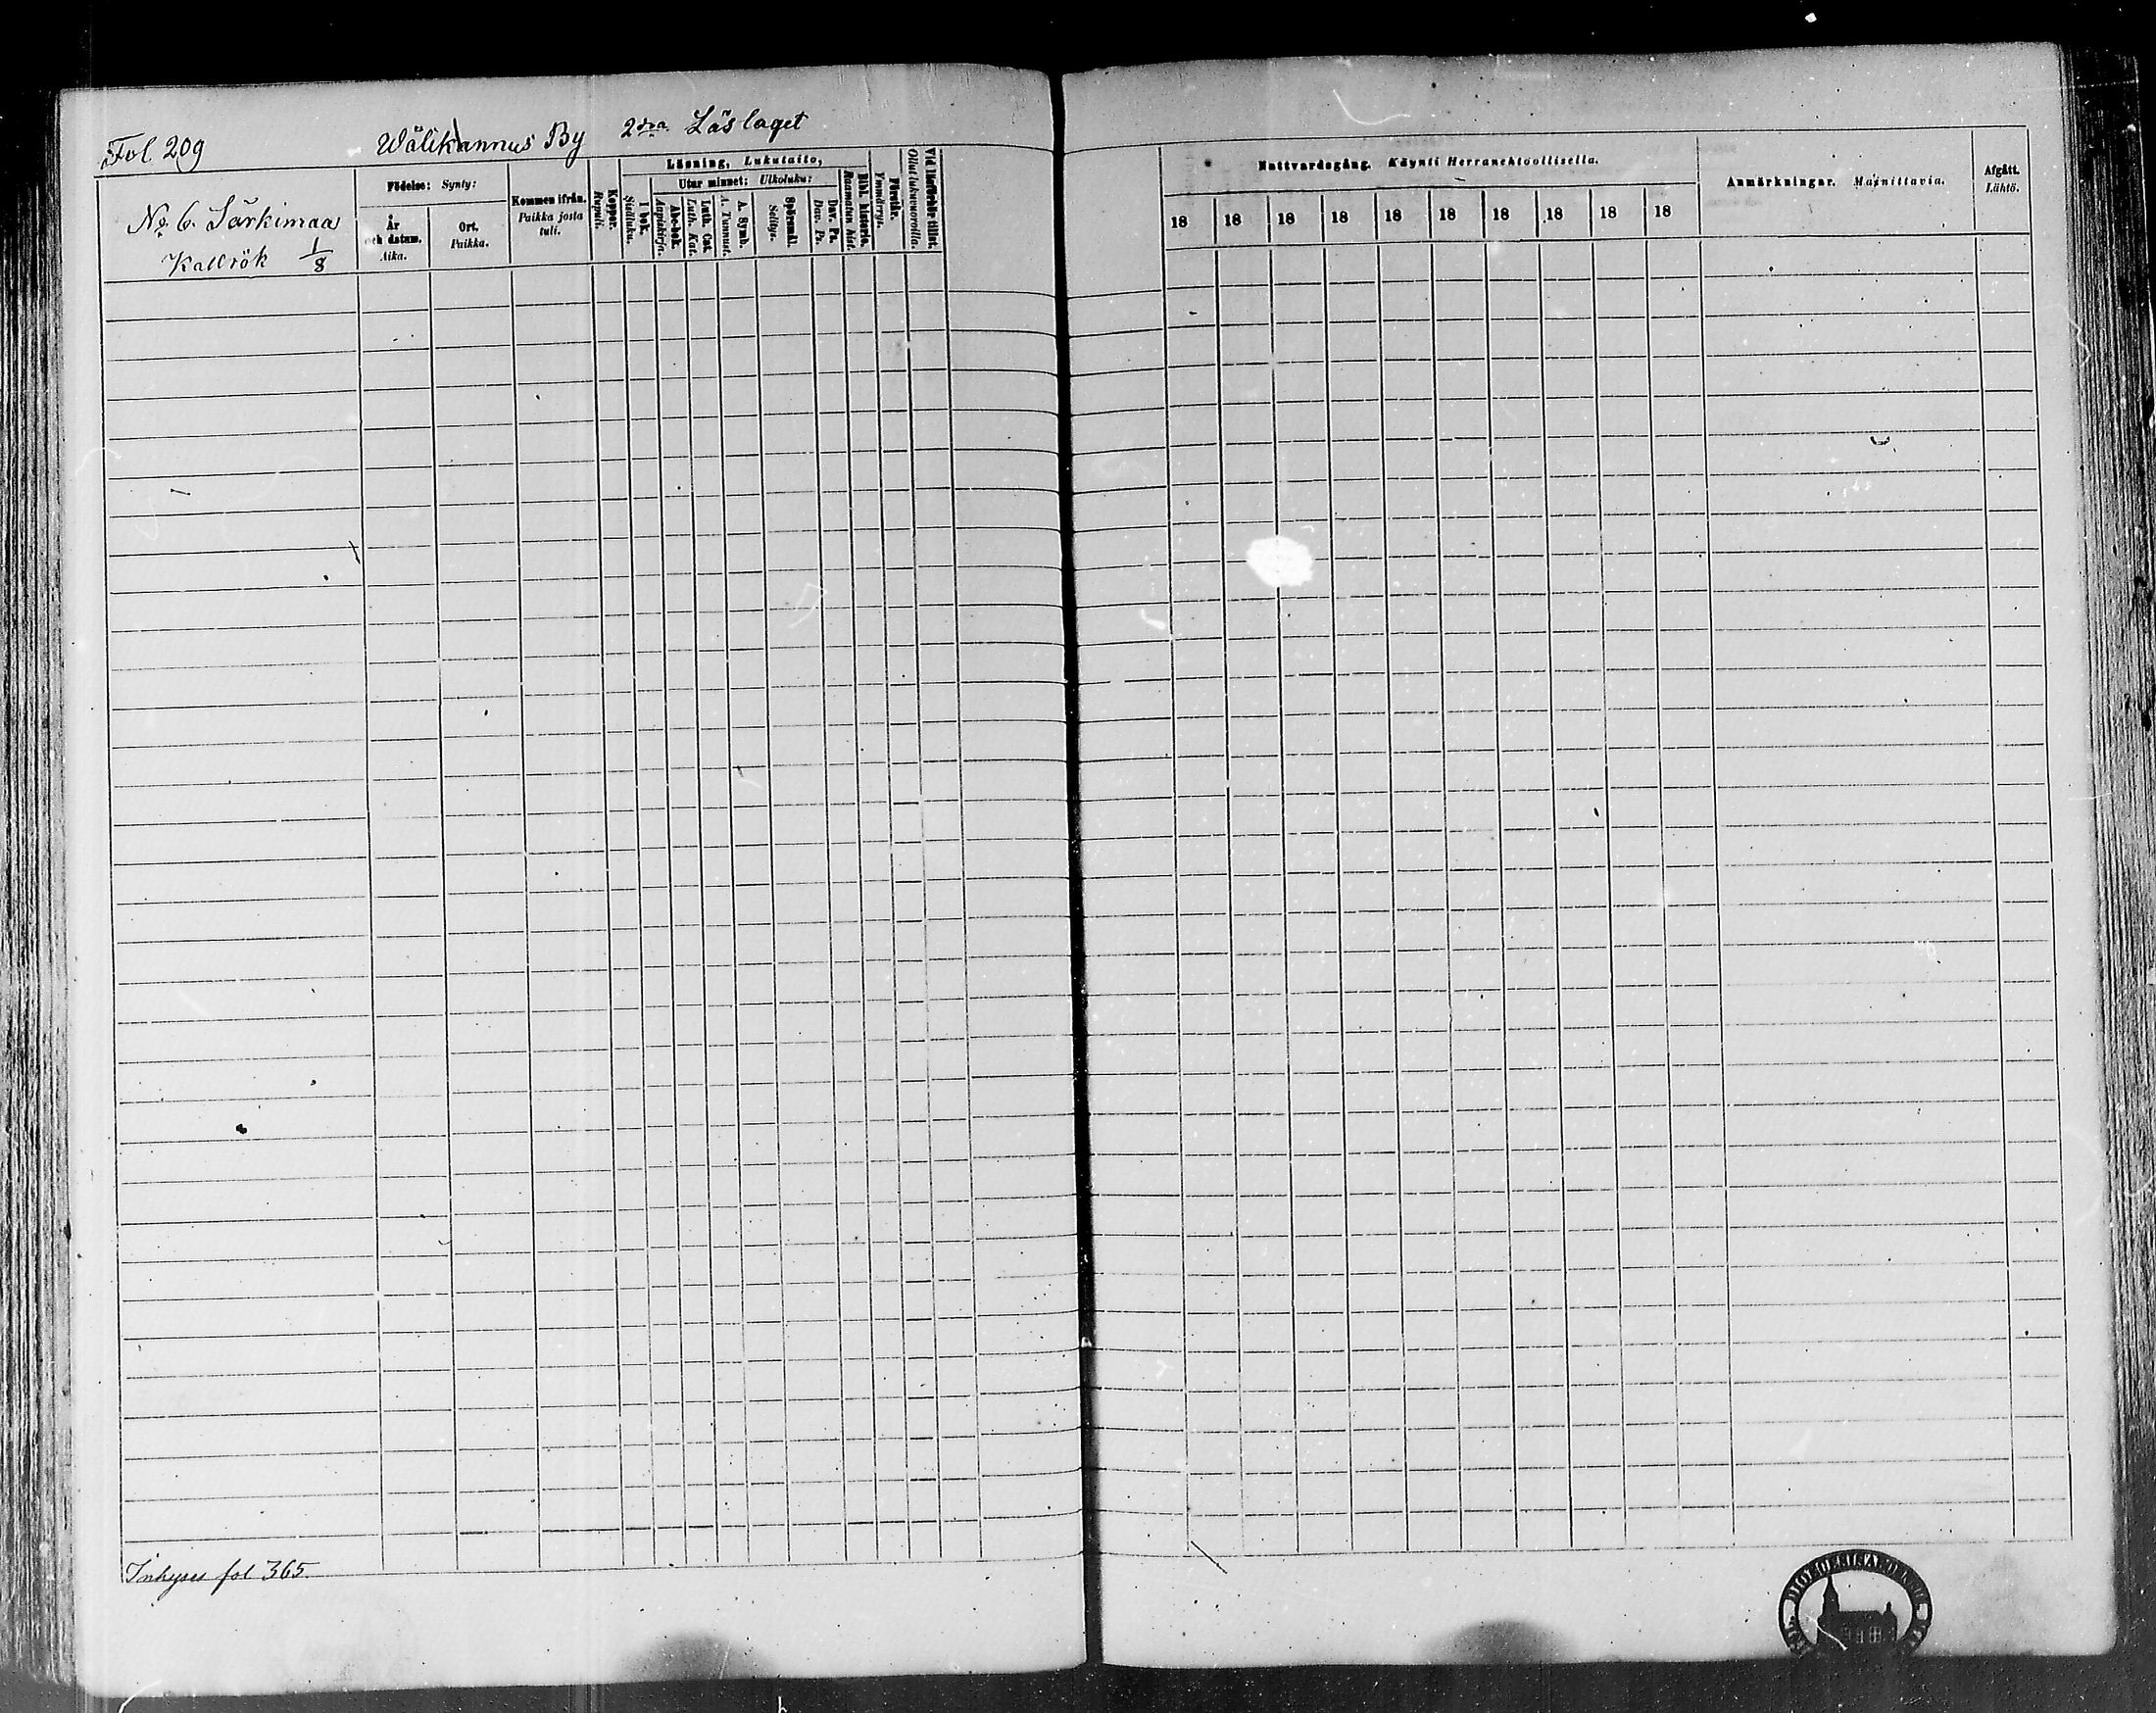 Fol. 209
Wälikannus By 2dra Läslaget
No 6. Särkimaa
Kallrök 1/8
Födelse: Synty:
År och datum. Aika.
Ort. Paikka.
Kommen ifrån. Paikka josta tuli.
Koppor. Rupuli.
Läsning, Lukutaito,
I bok. Sisäluku.
Utur minnet: Ulkoluku:
Abc-bok. Aapiskirja.
Luth. Cat. Luth. Kat.
A. Symb. A. Tunnust.
Spörsmål. Selitys.
Dav. Ps. Dav. Ps.
Bibl. historie. Raamatun hist.
Förstår. Ymmärrys.
Vid läsförhör tillst. Ollut lukuvuoroilla.
Nattvardsgång. Käynti Herranehtoollisella.
18 18 18 18 18 18 18 18 18 18
Anmärkningar. Muistittavia.
Afgått. Lähtö.
Inhyses fol 365.